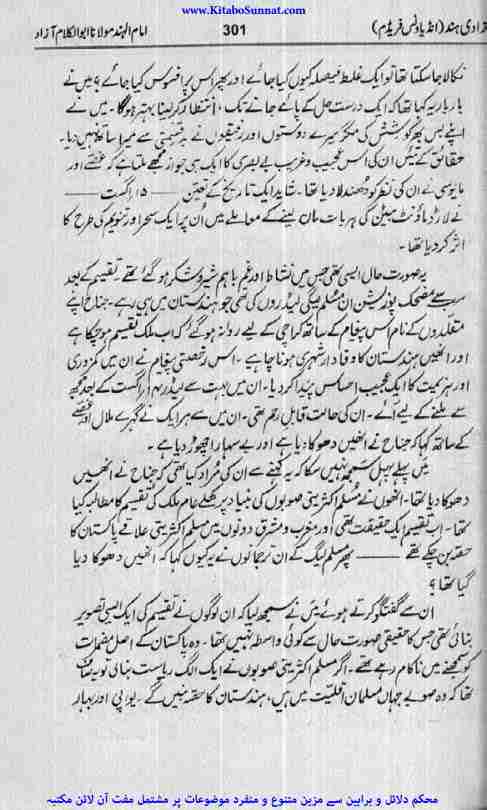 www.KitaboSunnat.com
آزادی ہند (انڈیا ونس فریڈم) 301 امام الہند مولانا ابوالکلام آزاد
نکالا جا سکتا تھا تو ایک غلط فیصلہ کیوں کیا جائے اور پھر اس پر افسوس کیا جائے ؟ میں نے
بار بار یہ کہا تھا کہ ایک درست حل کے پائے جانے تک، انتظار کر لینا بہتر ہوگا۔ میں نے
اپنے بس بھر کوشش کی مگر میرے دوستوں اور رفیقوں نے بدقسمتی سے میرا ساتھ نہیں دیا۔
حقائق کے تئیں ان کی اس عجیب و غریب بے بصری کا ایک ہی جواز مجھے ملتا ہے کہ غصّے اور
مایوسی نے ان کی نظر کو دھندلا دیا تھا۔ شاید ایک تاریخ کے تعین ——— ۱۵ اگست ———
نے لارڈ ماؤنٹ بیٹن کی ہر بات مان لینے کے معاملے میں اُن پر ایک سحر اور تنویم کی طرح کا
اثر کر دیا تھا۔
یہ صورت حال ایسی تھی جس میں نشاط اور غم باہم شیر و شکر ہو گئے تھے۔ تقسیم کے بعد
سب سے مضحک پوزیشن ان مسلم لیگی لیڈروں کی تھی جو ہندستان میں ہی رہے۔ جناح اپنے
مقلدوں کے نام اس پیغام کے ساتھ کراچی کے لیے روانہ ہو گئے کہ اب ملک تقسیم ہو چکا ہے
اور انھیں ہندستان کا وفادار شہری ہونا چاہیے۔ اس رخصتی پیغام نے ان میں کمزوری
اور ہزیمت کا ایک عجیب احساس پیدا کر دیا۔ ان میں بہت سے لیڈر ۱۴ اگست کے بعد مجھ
سے ملنے کے لیے آئے۔ ان کی حالت قابل رحم تھی۔ ان میں سے ہر ایک نے گہرے ملال اور غصّے
کے ساتھ کہا کہ جناح نے انھیں دھوکا دیا ہے اور بے سہارا چھوڑ دیا ہے۔
میں پہلے پہل سمجھ نہیں سکا کہ یہ کہنے سے ان کی مُراد کیا تھی کہ جناح نے انھیں
دھوکا دیا تھا۔ انھوں نے مُسلم اکثریتی صوبوں کی بنیاد پر کھلے عام ملک کی تقسیم کا مطالبہ کیا
تھا۔ اب تقسیم ایک حقیقت تھی اور مغرب و مشرق دونوں میں مسلم اکثریتی علاقے پاکستان کا
حصّہ بن چکے تھے ——— پھر مسلم لیگ کے ان ترجمانوں نے یہ کیوں کہا کہ انھیں دھوکا دیا
گیا تھا ؟
ان سے گفتگو کرتے ہوئے میں نے سمجھ لیا کہ ان لوگوں نے تقسیم کی ایک ایسی تصویر
بنائی تھی جس کا حقیقی صورت حال سے کوئی واسطہ نہیں تھا۔ وہ پاکستان کے اصل مضمرات
کو سمجھنے میں ناکام رہے تھے۔ اگر مسلم اکثریتی صوبوں نے ایک الگ ریاست بنائی تو یہ صاف
تھا کہ وہ صوبے جہاں مسلمان اقلیت میں ہیں، ہندستان کا حصّہ بنیں گے۔ یو پی اور بہار
محکم دلائل و براہین سے مزین متنوع و منفرد موضوعات پر مشتمل مفت آن لائن مکتبہ